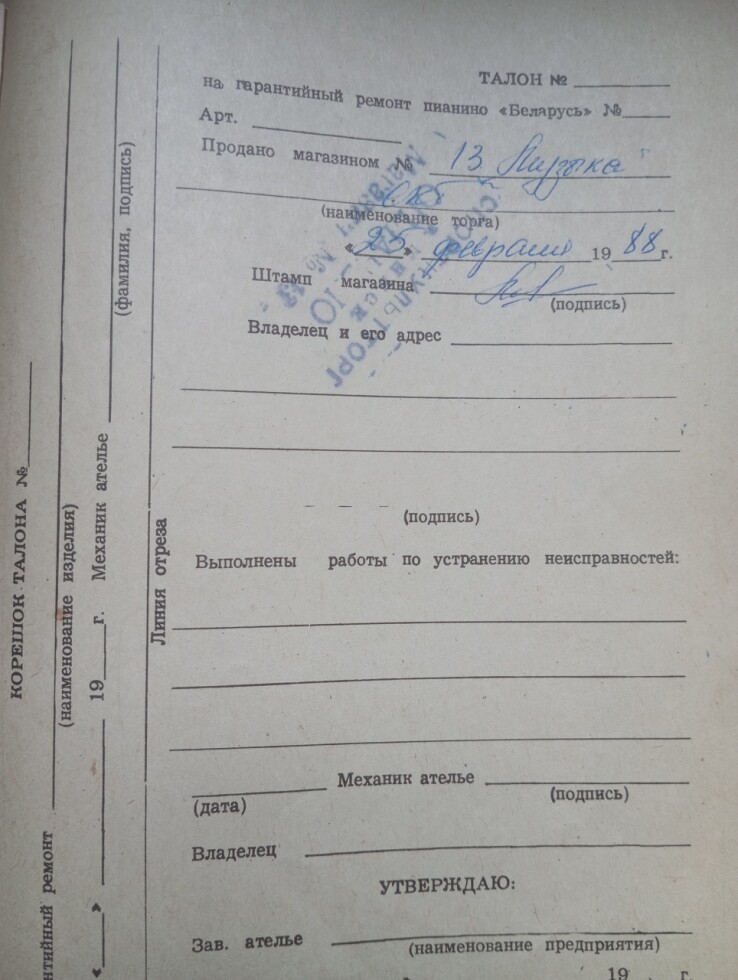 ТАЛОН №
на гарантийный ремонт пианино «Беларусь» №
Арт.
Продано магазином № 13 Музыка
(наименование торга)
«25» февраля 1988 г.
Штамп магазина
(подпись)
Владелец и его адрес
(подпись)
Выполнены работы по устранению неисправностей:
Механик ателье
(дата) (подпись)
Владелец
УТВЕРЖДАЮ:
Зав. ателье
(наименование предприятия)
19 г.
Линия отреза
КОРЕШОК ТАЛОНА №
нтийный ремонт
(наименование изделия)
« » 19 г. Механик ателье
(фамилия, подпись)